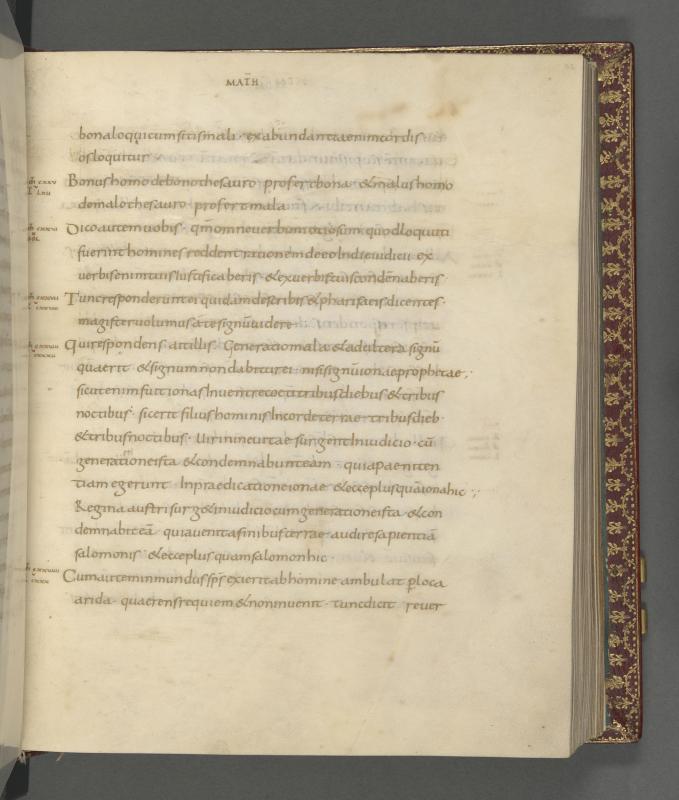 MATH
bona loqui cum sitis mali · ex abundantia enim cordis
os loquitur
Bonus homo de bono thesauro profert bona · & malus homo
de malo thesauro profert mala
Dico autem vobis · qm̄ omne verbum otiosum quod locuti
fuerint homines reddent rationem de eo In die iudicii ex
verbis enim tuis Iustificaberis · & ex verbis tuis condēnaberis ·
Tunc responderunt ei quidam de scribis & pharisaeis dicentes ·
magister volumus a te signū videre
Qui respondens ait illis Generatio mala & adultera signū
quaerit & signum non dabitur ei · nisi signū ionae prophetae ·,
sicut enim fuit ionas In ventre coeti tribus diebus & tribus
noctibus · sic erit filius hominis In corde terrae tribus dieb·
& tribus noctibus · Viri nineuitae surgent In iudicio · cū
generatione ista & condemnabunt eam · quia paeniten
tiam egerunt In praedicatione ionae & ecce plus quā iona hic ·,
Regina austri surg& in iudicio cum generatione ista & con
demnabit eā quia venit a finibus terrae audire sapientiā
salomonis & ecce plus quam salomon hic ·
Cum autem inmundus sp̄s exierit ab homine ambulat p̱ loca
arida · quaerens requiem & non invenit · tunc dicit rever